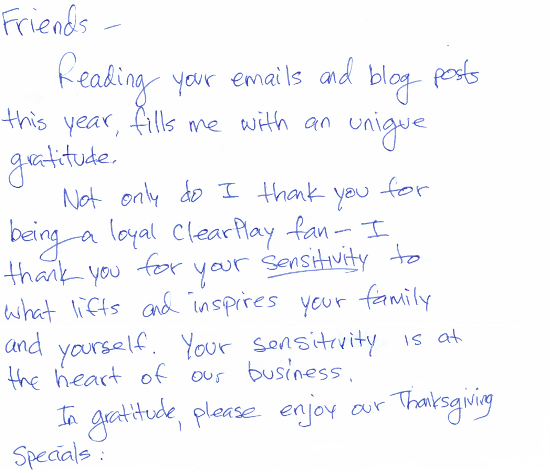 Friends -
Reading your emails and blog posts
this year, fills me with an unique
gratitude.
Not only do I thank you for
being a loyal ClearPlay fan - I
thank you for your sensitivity to
what lifts and inspires your family
and yourself. Your sensitivity is at
the heart of our business.
In gratitude, please enjoy our Thanksgiving
Specials: